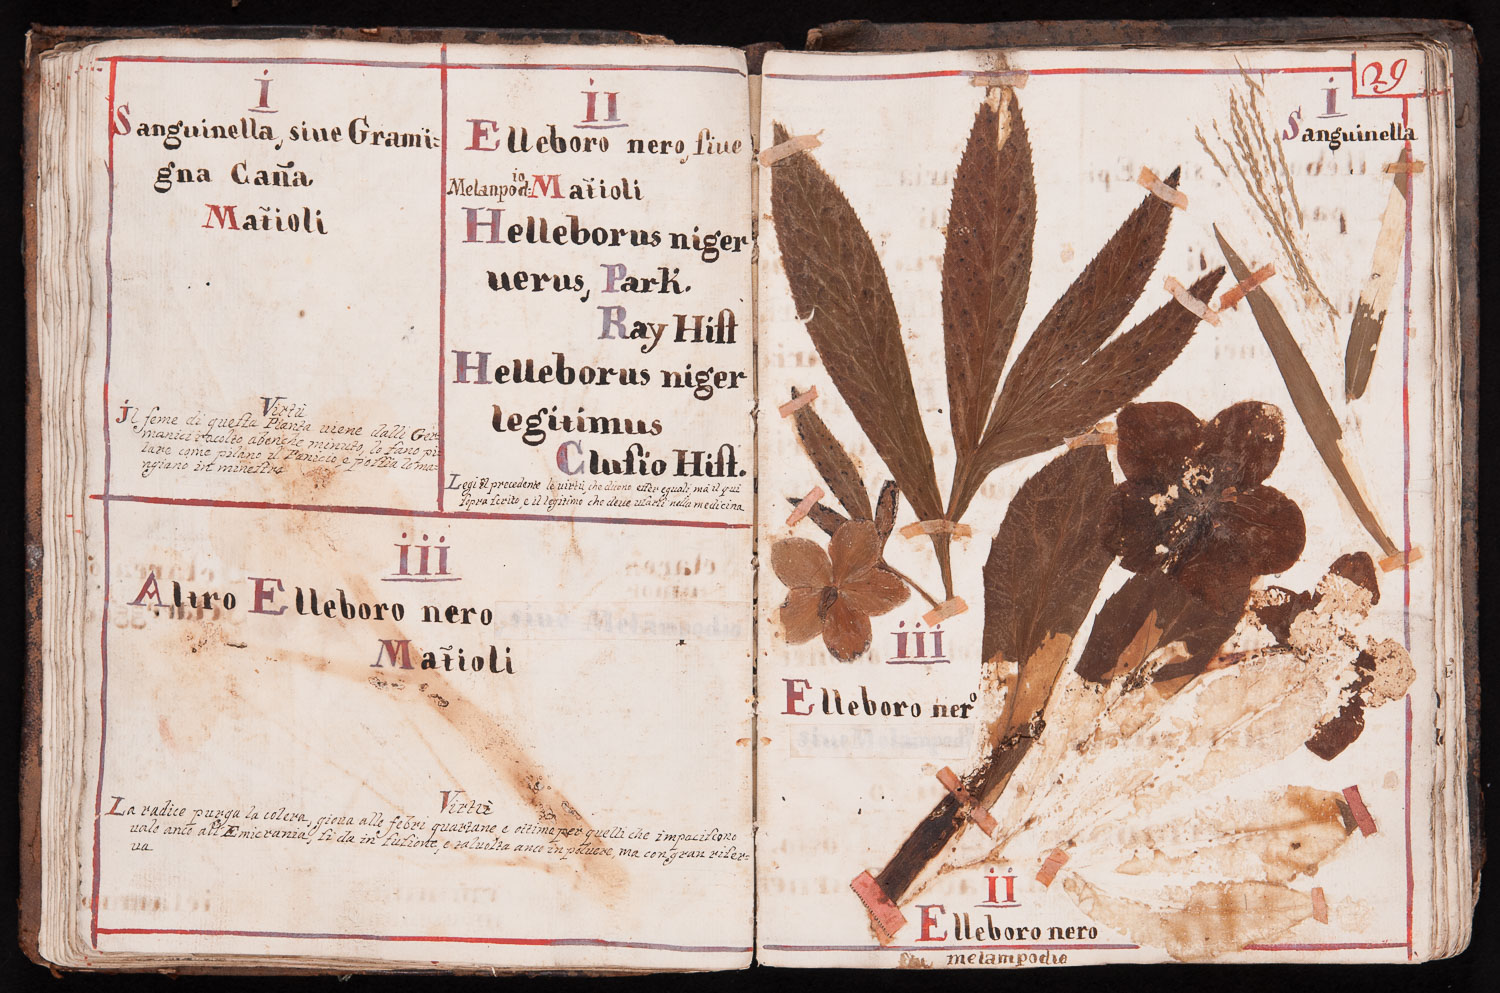 i
Sanguinella, siue Grami:
gna Cana
Matioli
Virtù
Il seme di questa Pianta uiene dalli Ger
manici racolto, abenche minuto, lo fano pi
lare come pilano il Panicio, e poscia lo ma:
ngiano in minestra
ii
Elleboro nero, siue
Melanpodio: Matioli
Helleborus niger
uerus, Park.
Ray Hist
Helleborus niger
legitimus
Clusio Hist.
Legi il precedente le uirtù, che dicono esser equali, mà il qui
sopra scrito, e il legitimo che deue usarsi nella medicina
iii
Altro Elleboro nero
Matioli
Virtù
La radice purga la colera, gioua alle febri quartane e ottime per quelli che impaciscono
uale anco all' Emicrania, si da in fusione, e taluolta anco in poluere, ma con gran riser:
ua
29
i
Sanguinella
iii
Elleboro nero
ii
Elleboro nero
melampodio